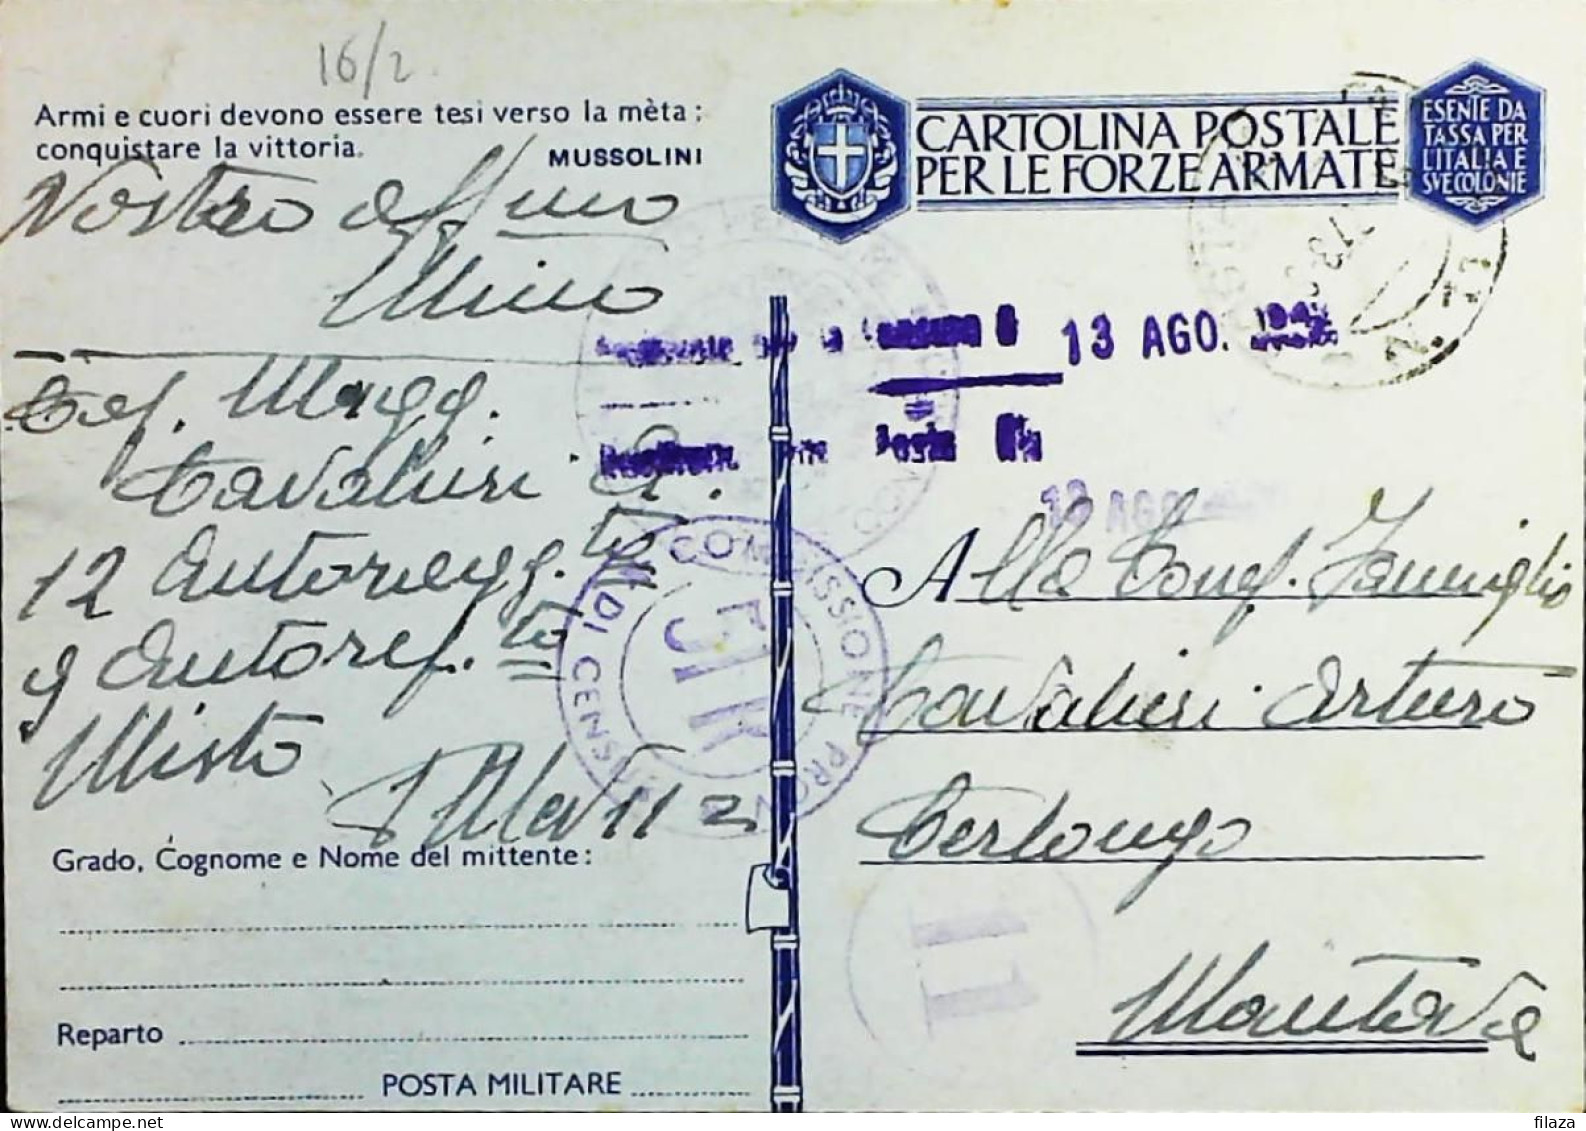 16/2
Armi e cuori devono essere tesi verso la mèta :
conquistare la vittoria.
MUSSOLINI
CARTOLINA POSTALE
PER LE FORZE ARMATE
ESENTE DA
TASSA PER
L'ITALIA E
SVE COLONIE
Nostro aff/mo
Mino
13 AGO.
Magg.
Cavalieri
12 Autoregg.to
9 Autorep.to
Misto
Grado, Cognome e Nome del mittente:
Reparto
POSTA MILITARE
13 AGO
COMMISSIONE PROV. DI CENSURA
51R
Posta
Alla Famiglia
Cavalieri Arturo
Cerlongo
Mantova
11
filaza